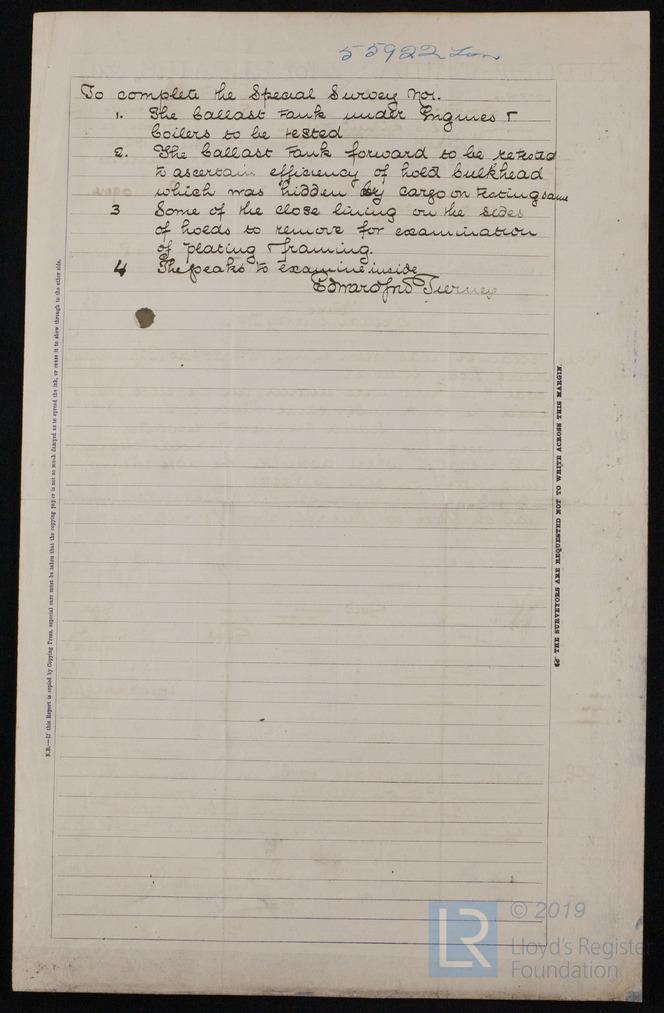 55922 Lon
To complete the Special Survey No1.
1. The ballast tank under Engines &
boilers to be tested
2. The ballast tank forward to be retested
to ascertain efficiency of hold bulkhead
which was hidden by cargo on testing same
3 Some of the close lining on the sides
of holds to remove for examination
of plating & framing.
4 The peaks to examine inside
Edward Jno Tierney
N.B.—If this Report is copied by Copying Press, especial care must be taken that the copying paper is not so much damped as to spread the ink, or cause it to show through to the other side.
☞ THE SURVEYORS ARE REQUESTED NOT TO WRITE ACROSS THIS MARGIN.
LR
© 2019
Lloyd's Register
Foundation